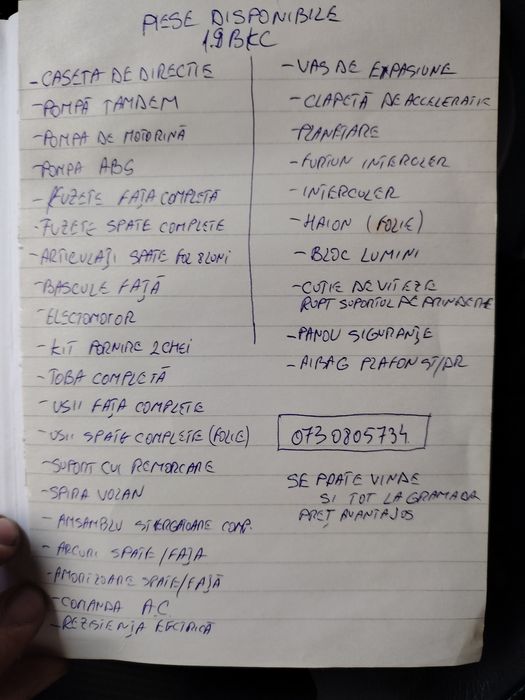 PIESE DISPONIBILE
1.9 BKC
- CASETA DE DIRECTIE
- POMPĂ TAMDEM
- POMPA DE MOTORINĂ
- POMPA ABS
- FUZETE FAȚA COMPLETĂ
- FUZETE SPATE COMPLETE
- ARTICULAȚI SPATE FOL 8LUNI
- BASCULE FAȚĂ
- ELECTOMOTOR
- KIT PORNIRE 2CHEI
- TOBA COMPLETĂ
- USII FAȚA COMPLETE
- USII SPATE COMPLETE (FOLIE)
- SUPORT CU REMORCARE
- SPIRA VOLAN
- AMSAMBLU STERGATOARE COMP.
- ARCURI SPATE/FAȚA
- AMORTIZOARE SPATE/FAȚĂ
- COMANDA AC
- REZISIENȚA ELECTRICĂ
- VAS DE EXPASIUNE
- CLAPETĂ DE ACCELERATIE
- PLANETARE
- FURTUN INTERCLER
- INTERCULER
- HAION (FOLIE)
- BLOC LUMINI
- CUTIE DE VITEZE
RUPT SUPORTUL DE PRINDERE
- PANOU SIGURANȚE
- AIRBAG PLAFON ST/DR
0730805734
SE POATE VINDE
SI TOT LA GRAMADA
PREȚ AVANTAJOS